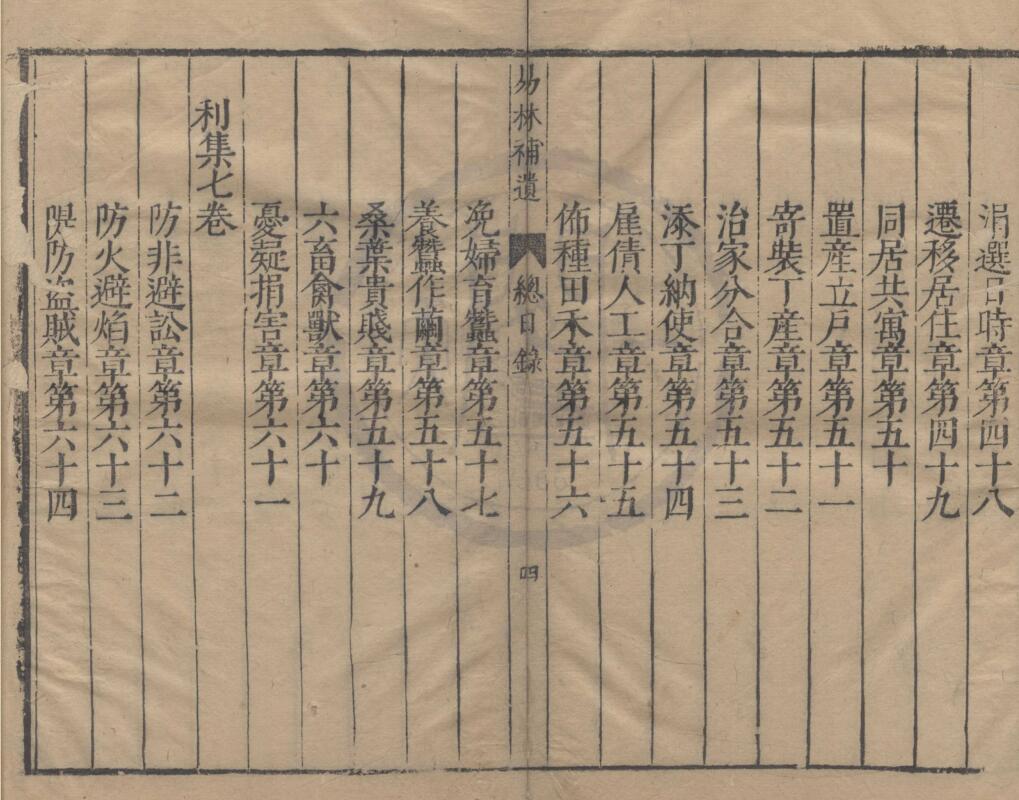 涓選日時章第四十八
遷移居住章第四十九
同居共寓章第五十
置産立戶章第五十一
寄裝丁產章第五十二
治家分合章第五十三
添丁納使章第五十四
雇倩人工章第五十五
佈種田禾章第五十六
易林補遺 總目錄 四
凂婦育蠶章第五十七
養蠶作繭章第五十八
桑葉貴賤章第五十九
六畜禽獸章第六十
憂疑捐害章第六十一
利集七卷
防非避訟章第六十二
防火避焰章第六十三
隄防盜賊章第六十四